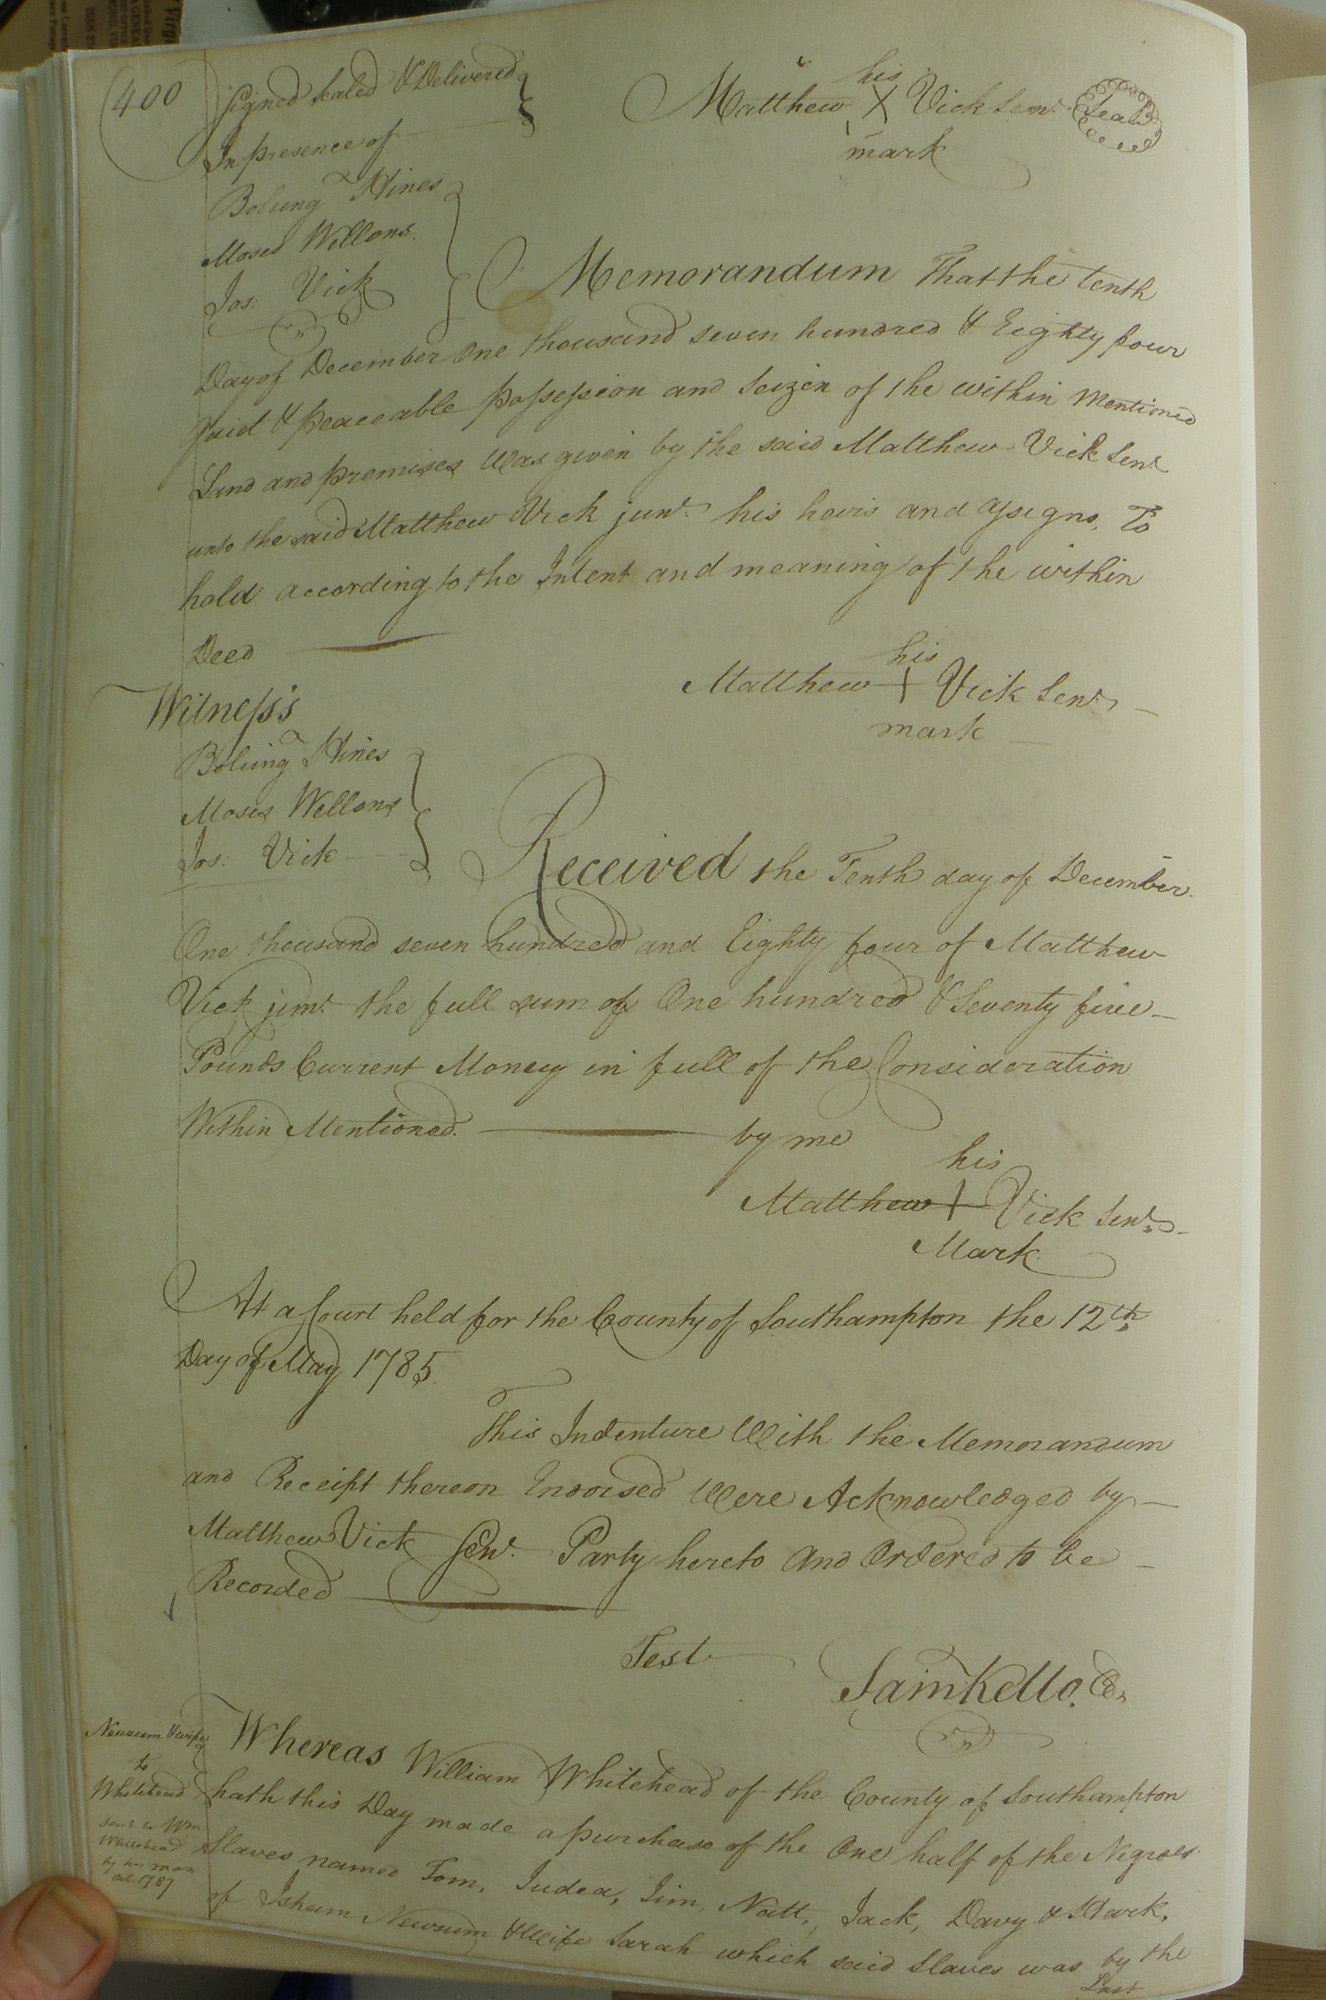 400
Signed Sealed & Delivered
In presence of
Boling Hines
Moses Wellons
Jos: Vick
his
Matthew X Vick Senr. Seal
mark
Memorandum That the tenth
Day of December One thousand seven hundred & Eighty four
Quiet & peaceable possession and Seizen of the within Mentioned
Land and premises Was given by the said Matthew Vick Senr.
unto the said Matthew Vick junr. his heirs and assigns. To
hold according to the Intent and meaning of the within
Deed
his
Matthew + Vick Senr.
mark
Witness's
Boling Hines
Moses Wellons
Jos: Vick
Received the Tenth day of December
One thousand seven hundred and Eighty four of Matthew
Vick junr. the full sum of One hundred & Seventy five
Pounds Current Money in full of the Consideration
Within Mentioned. by me
his
Matthew + Vick Senr.
Mark
At a Court held for the County of Southampton the 12th.
Day of May 1785.
This Indenture With the Memorandum
and Receipt thereon Endorsed Were Acknowledged by
Matthew Vick Senr. Party hereto And Ordered to be
Recorded
Test
Saml Kello. C.
Newsum & wife
to
Whitehead
sent to Wm
Whitehead
by his man
Oct 1787
Whereas William Whitehead of the County of Southampton
hath this Day made a purchase of the One half of the Negroes
Slaves named Tom, Judea, Jim, Natt, Jack, Davy & Hark,
of Isham Newsum & Wife Sarah which said Slaves was by the
Last